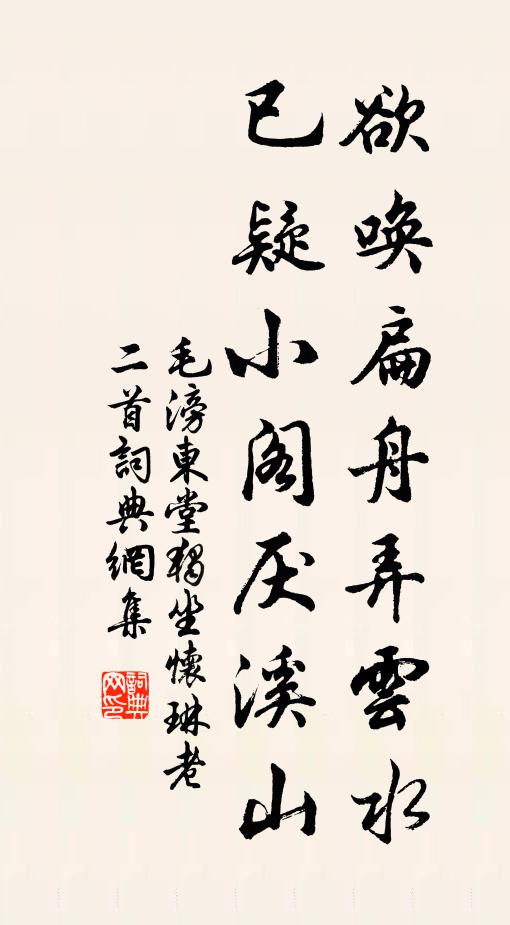 欲唤扁舟弄雲水
已疑小阁厌溪山
毛滂東堂獨坐懷琳老
二首詞典網集
詞典
网印